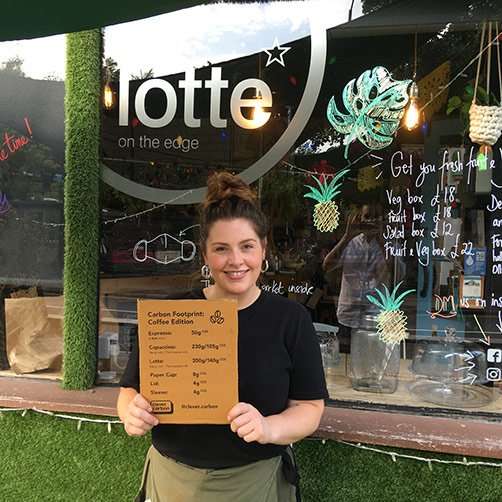 lotte
on the edge
time!
Get you fresh fruit & V
Veg box £18
Fruit box £18
Salad box £12
Fruit & Veg box £22
market inside
DM us on
Carbon Footprint:
Coffee Edition
Espresso: 50g
Cappuccino: 230g/105g
Latte: 300g/140g
Paper Cup: 8g
Lid: 4g
Sleeve: 4g
clever
carbon
@clever.carbon